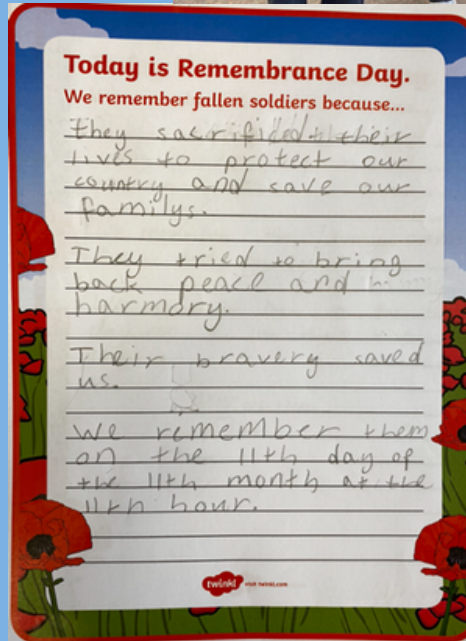 Today is Remembrance Day.
We remember fallen soldiers because...
they sacrifided their
lives to protect our
country and save our
familys.
They tried to bring
back peace and
harmory.
Their bravery saved
us.
We remember them
on the 11th day of
the 11th month at the
11th hour.
twinkl visit twinkl.com